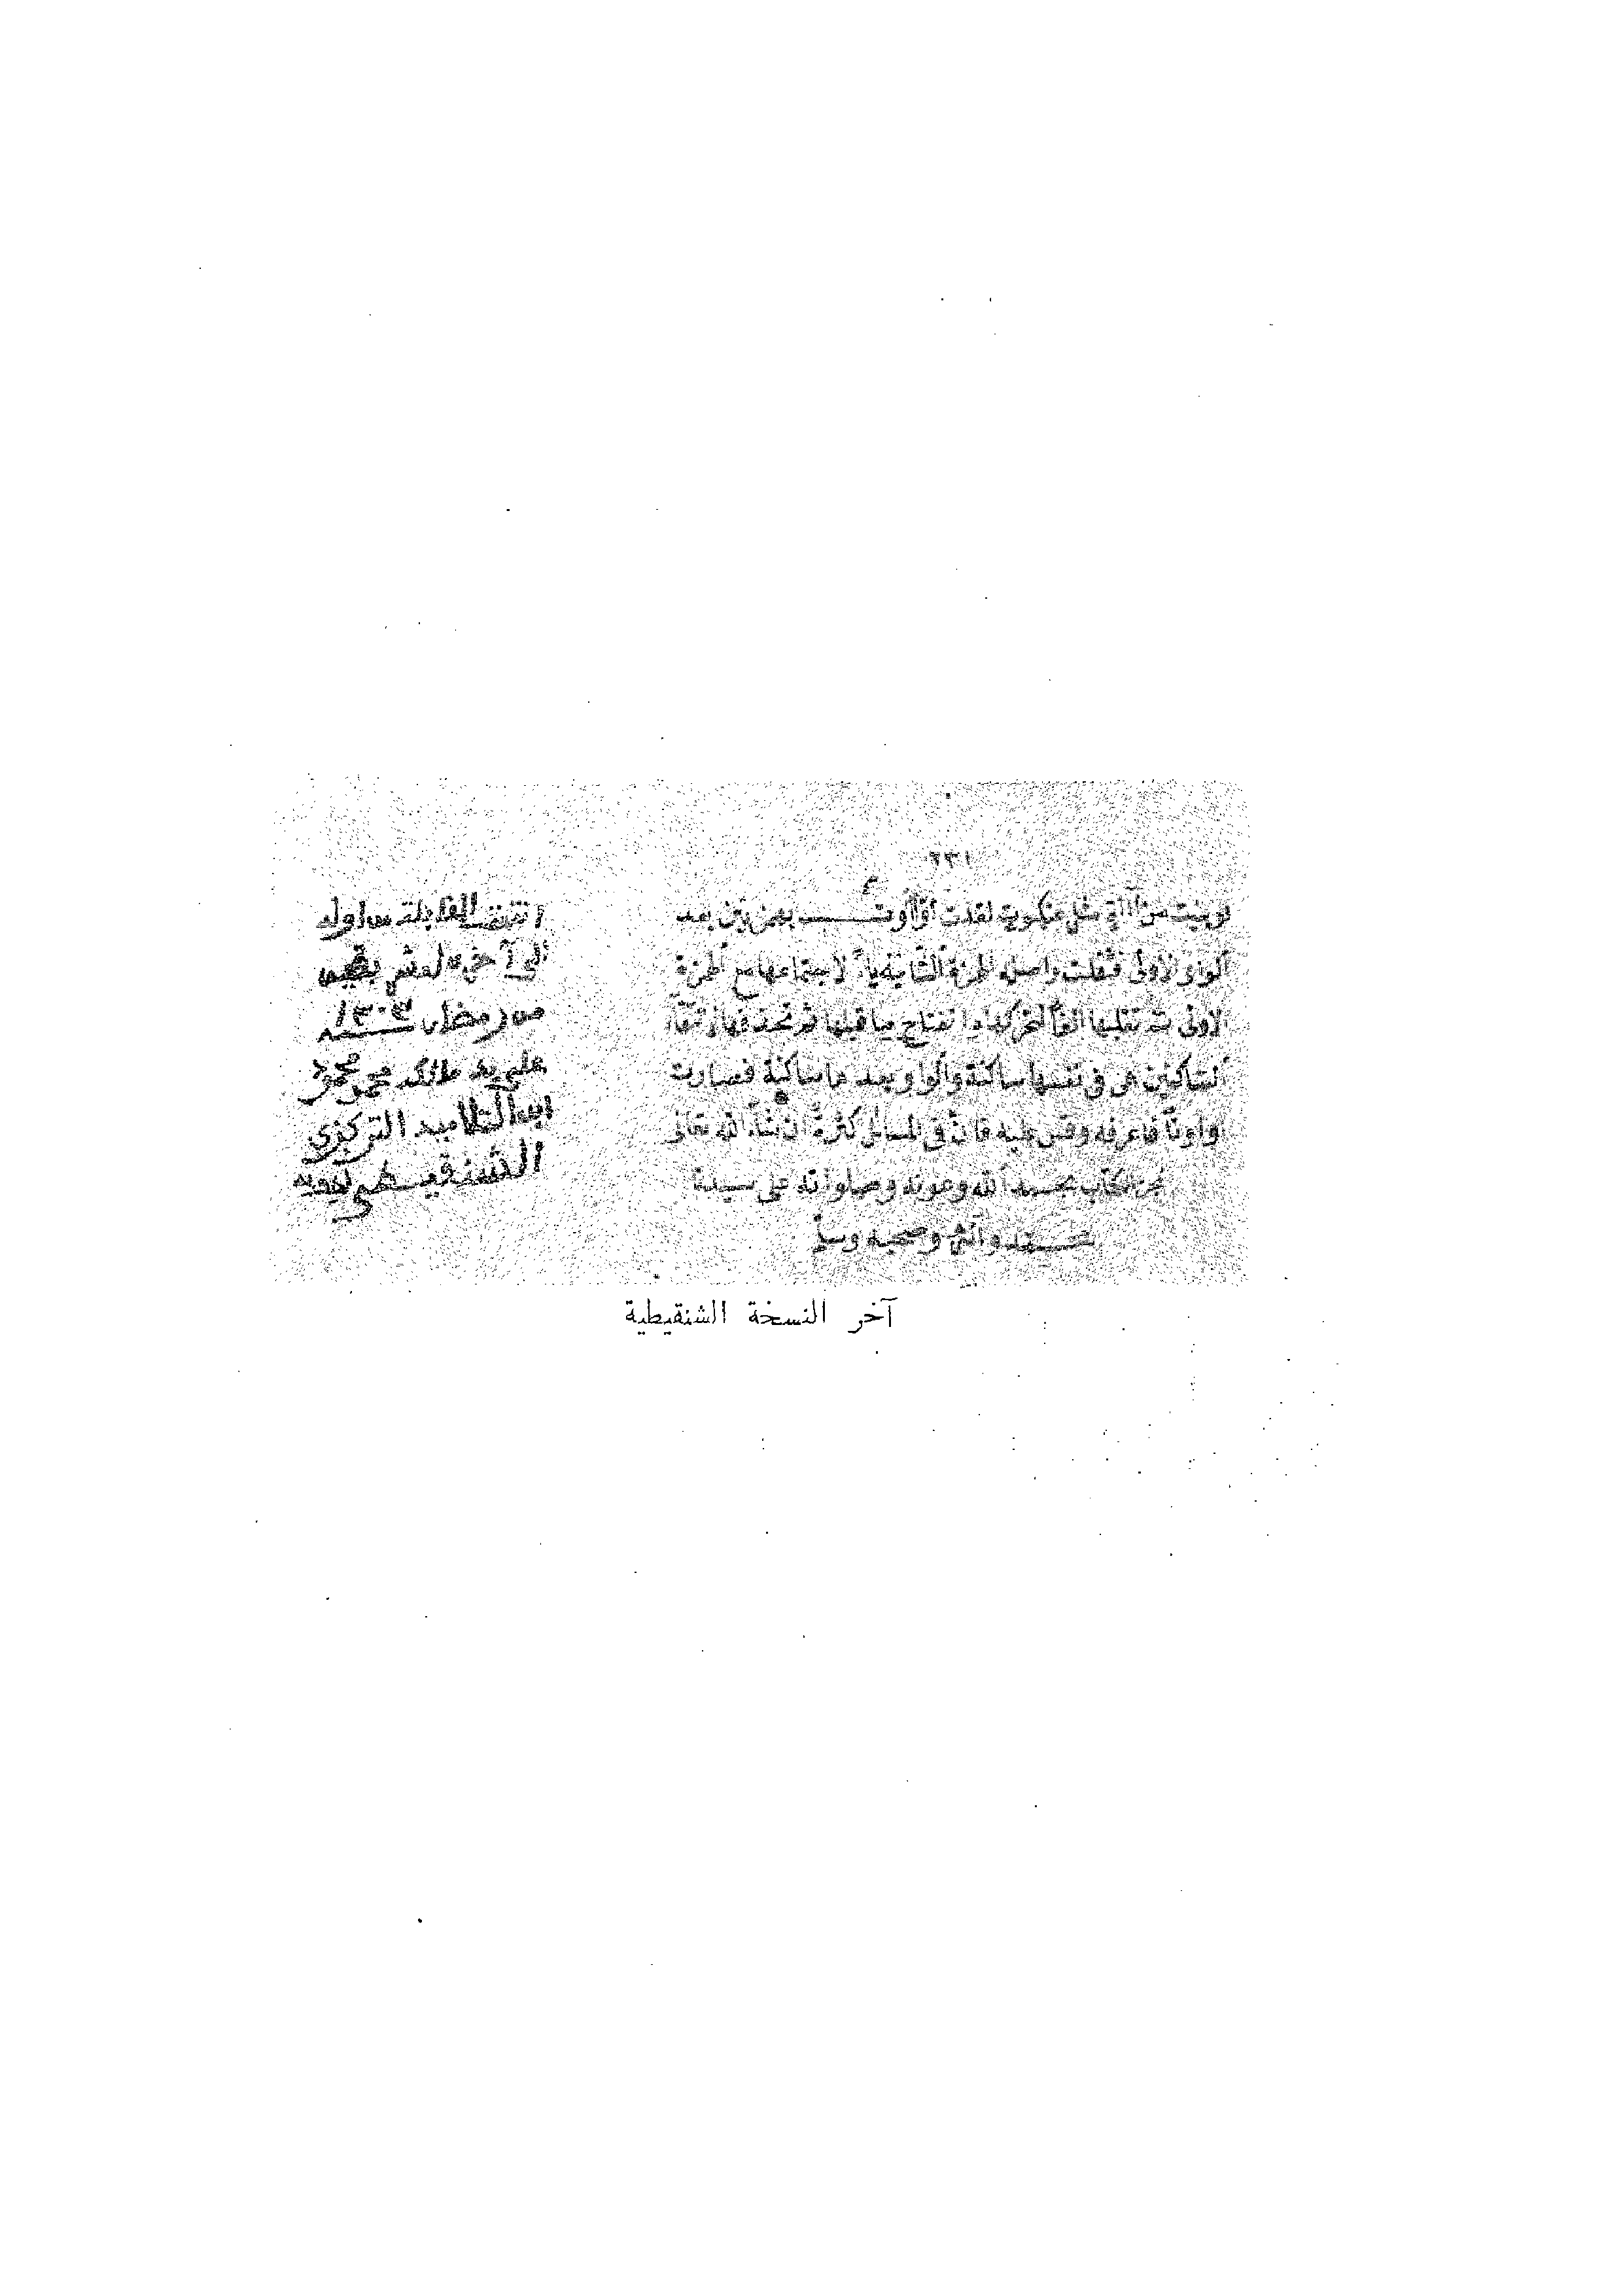 ٢٣١
لو بنيت من آاة مثل عنكبوت لقلت أوأوت بهمزتين بعد
الواو الأولى فقلت واصل الهمزة الثانية ياء لاجتماعها مع الهمزة
الأولى ثم تقلبها ألفا لتحركها وانفتاح ما قبلها ثم تحذفها لالتقاء
الساكنين هي في نفسها ساكنة والواو بعدها ساكنة فصارت
فاعرفه وقس عليه فان في المسائل كثرة ان شاء الله تعالى
نجز الكتاب بحمد الله وعونه وصلواته على سيدنا
محمد وآله وصحبه وسلم
انتهت المقابلة من اوله
الى آخره لعشر بقين
من رمضان سنة ١٣٠٣
على يد مالكه محمد محمود
ابن التلاميد التركزي
الشنقيطي
آخر النسخة الشنقيطية